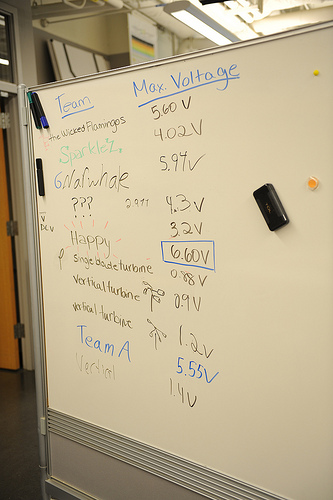 Team Max. Voltage
the Wicked Flamingos 5.60 V
Sparklez 4.02 V
GNarwhale 5.97V
??? 2.977 4.3V
3.2V
Happy 6.60V
single blade turbine 0.88V
Vertical turbine 0.9V
vertical turbine 1.2V
Team A 5.55V
Vertical 1.4V